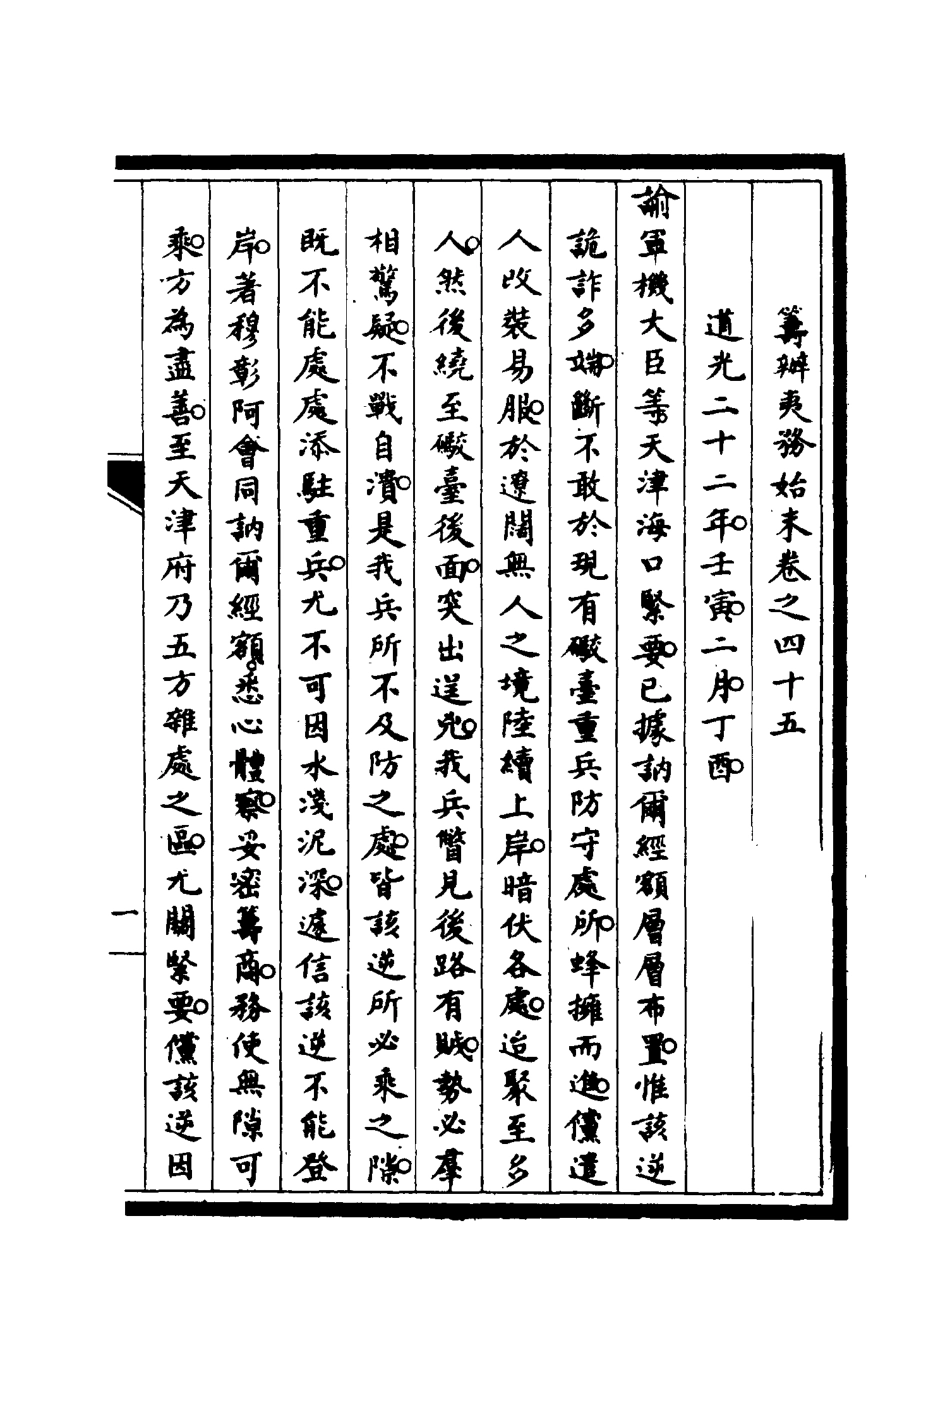 籌辦夷務始末卷之四十五
道光二十二年。壬寅。二月。丁酉。
諭軍機大臣等。天津海口緊要。已據訥爾經額層層布置。惟該逆
詭詐多端。斷不敢於現有礮臺重兵防守處所。蜂擁而進。儻遣
人改裝易服。於遼闊無人之境陸續上岸。暗伏各處。迨聚至多
人。然後繞至礮臺後面。突出逞兇。我兵瞥見後路有賊。勢必羣
相驚疑。不戰自潰。是我兵所不及防之處。皆該逆所必乘之隙。
既不能處處添駐重兵。尤不可因水淺泥深。遽信該逆不能登
岸。著穆彰阿會同訥爾經額。悉心體察。妥密籌商。務使無隙可
乘。方為盡善。至天津府乃五方雜處之區。尤關緊要。儻該逆因
一